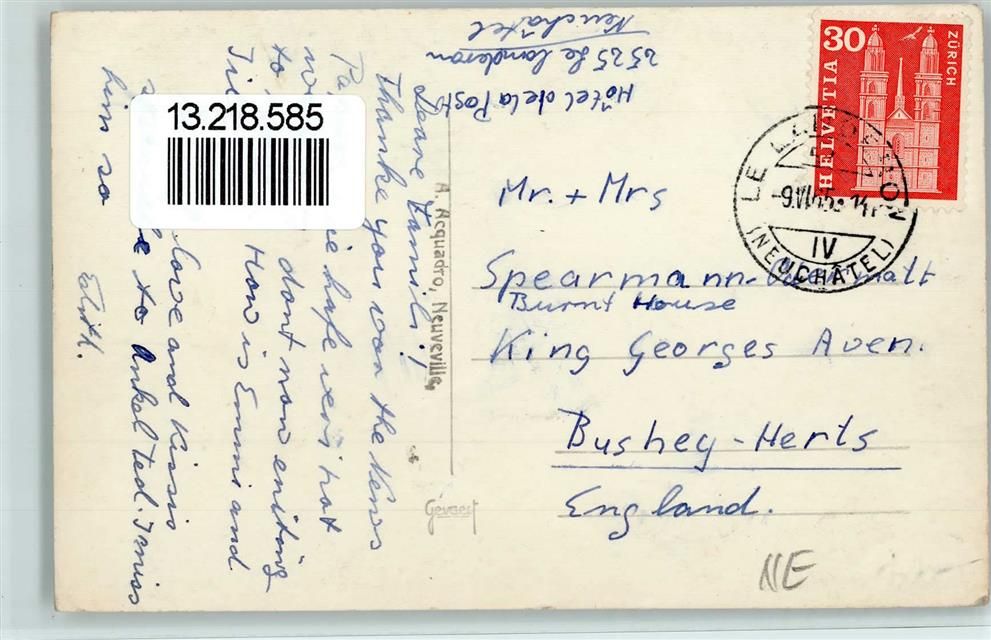 Hôtel de la Post
2525 Le Landeron
Neuchâtel
Deare Famili!
Thanke you von the News
Pa ie hafe veri hot
to dont non eniting
How is Emmi and
Love and Kissis
to Onkel Ted. I miss
him so
Edith.
A. Acquadro, Neuveville
Gevaert
13.218.585
30
HELVETIA
ZÜRICH
LE LANDERON
-9.VI
IV
(NEUCHÂTEL)
Mr. + Mrs
Spearmann
Burnt House
King Georges Aven.
Bushey-Herts
England.
NE